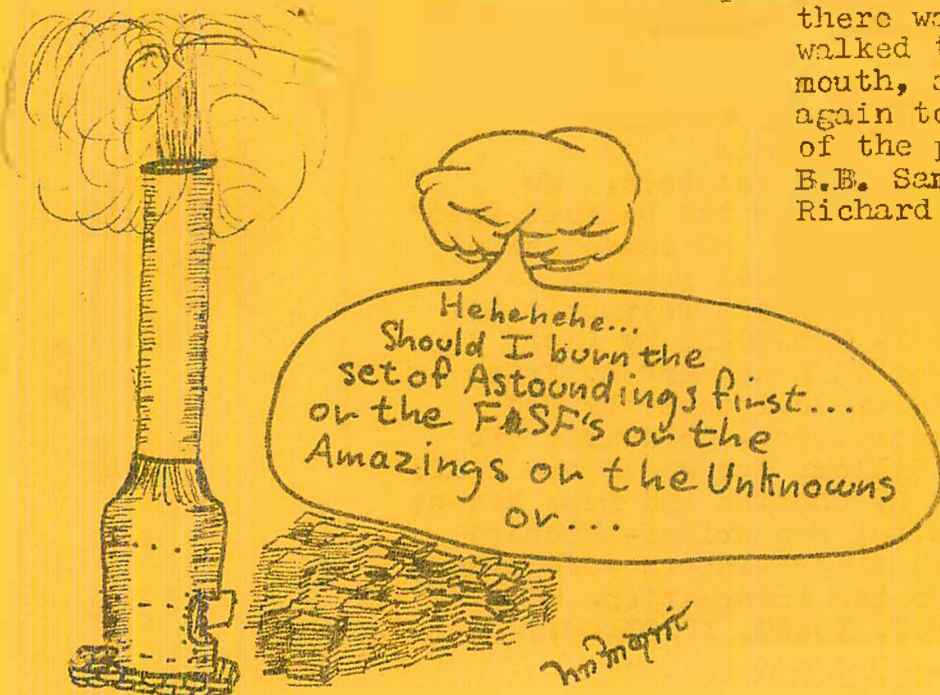 there wa
walked t
mouth, a
again to
of the p
B.B. Sam
Richard
Hehehehe...
Should I burn the
set of Astoundings first...
or the F&SF's or the
Amazings or the Unknowns
or...